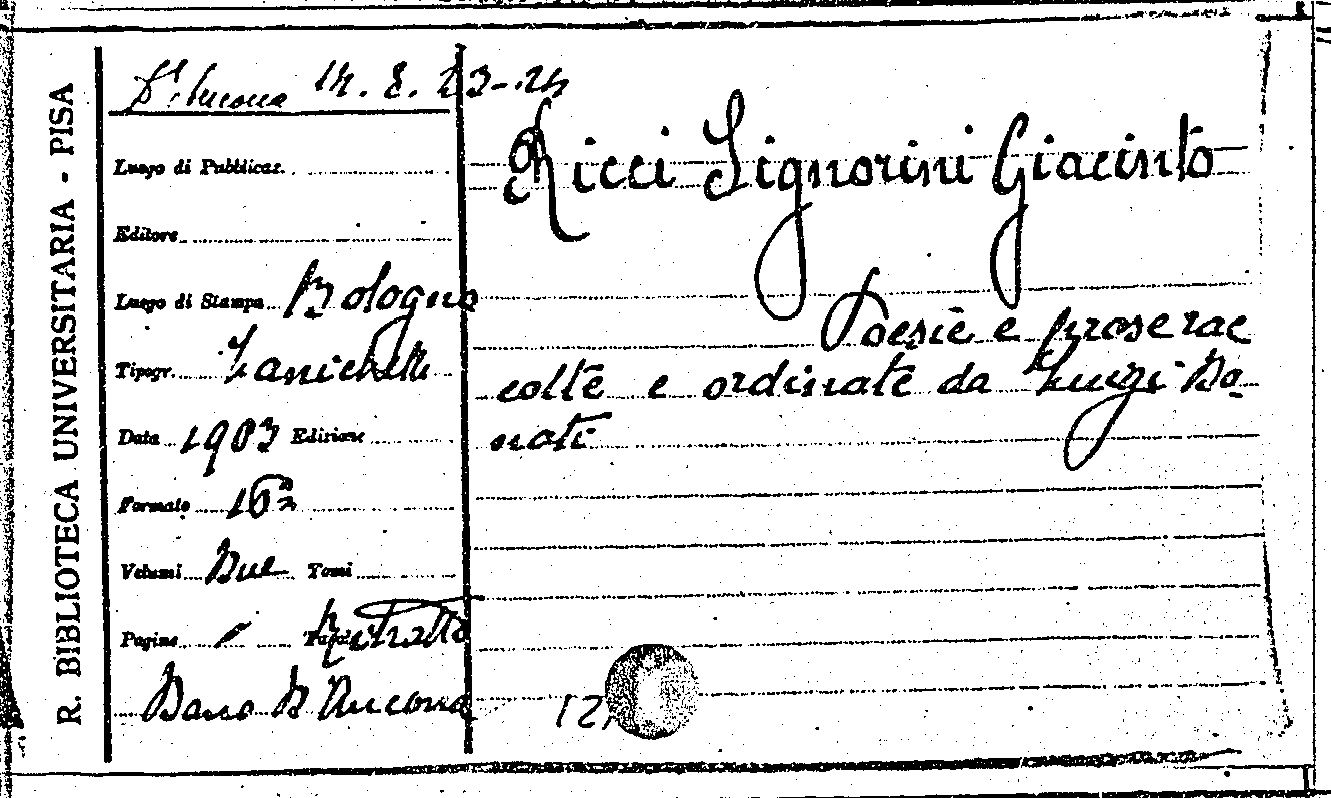 R. BIBLIOTECA UNIVERSITARIA - PISA
D'Ancona 14. 8. 23-24
Luogo di Pubblicaz.
Editore
Luogo di Stampa Bologna
Tipogr. Zanichelli
Data 1903 Edizione
Formato 16º
Volumi Due Tomi
Pagine Ritratto
Dono D'Ancona
Ricci Signorini Giacinto
Poesie e prose rac
colte e ordinate da Luigi Do-
nati
12